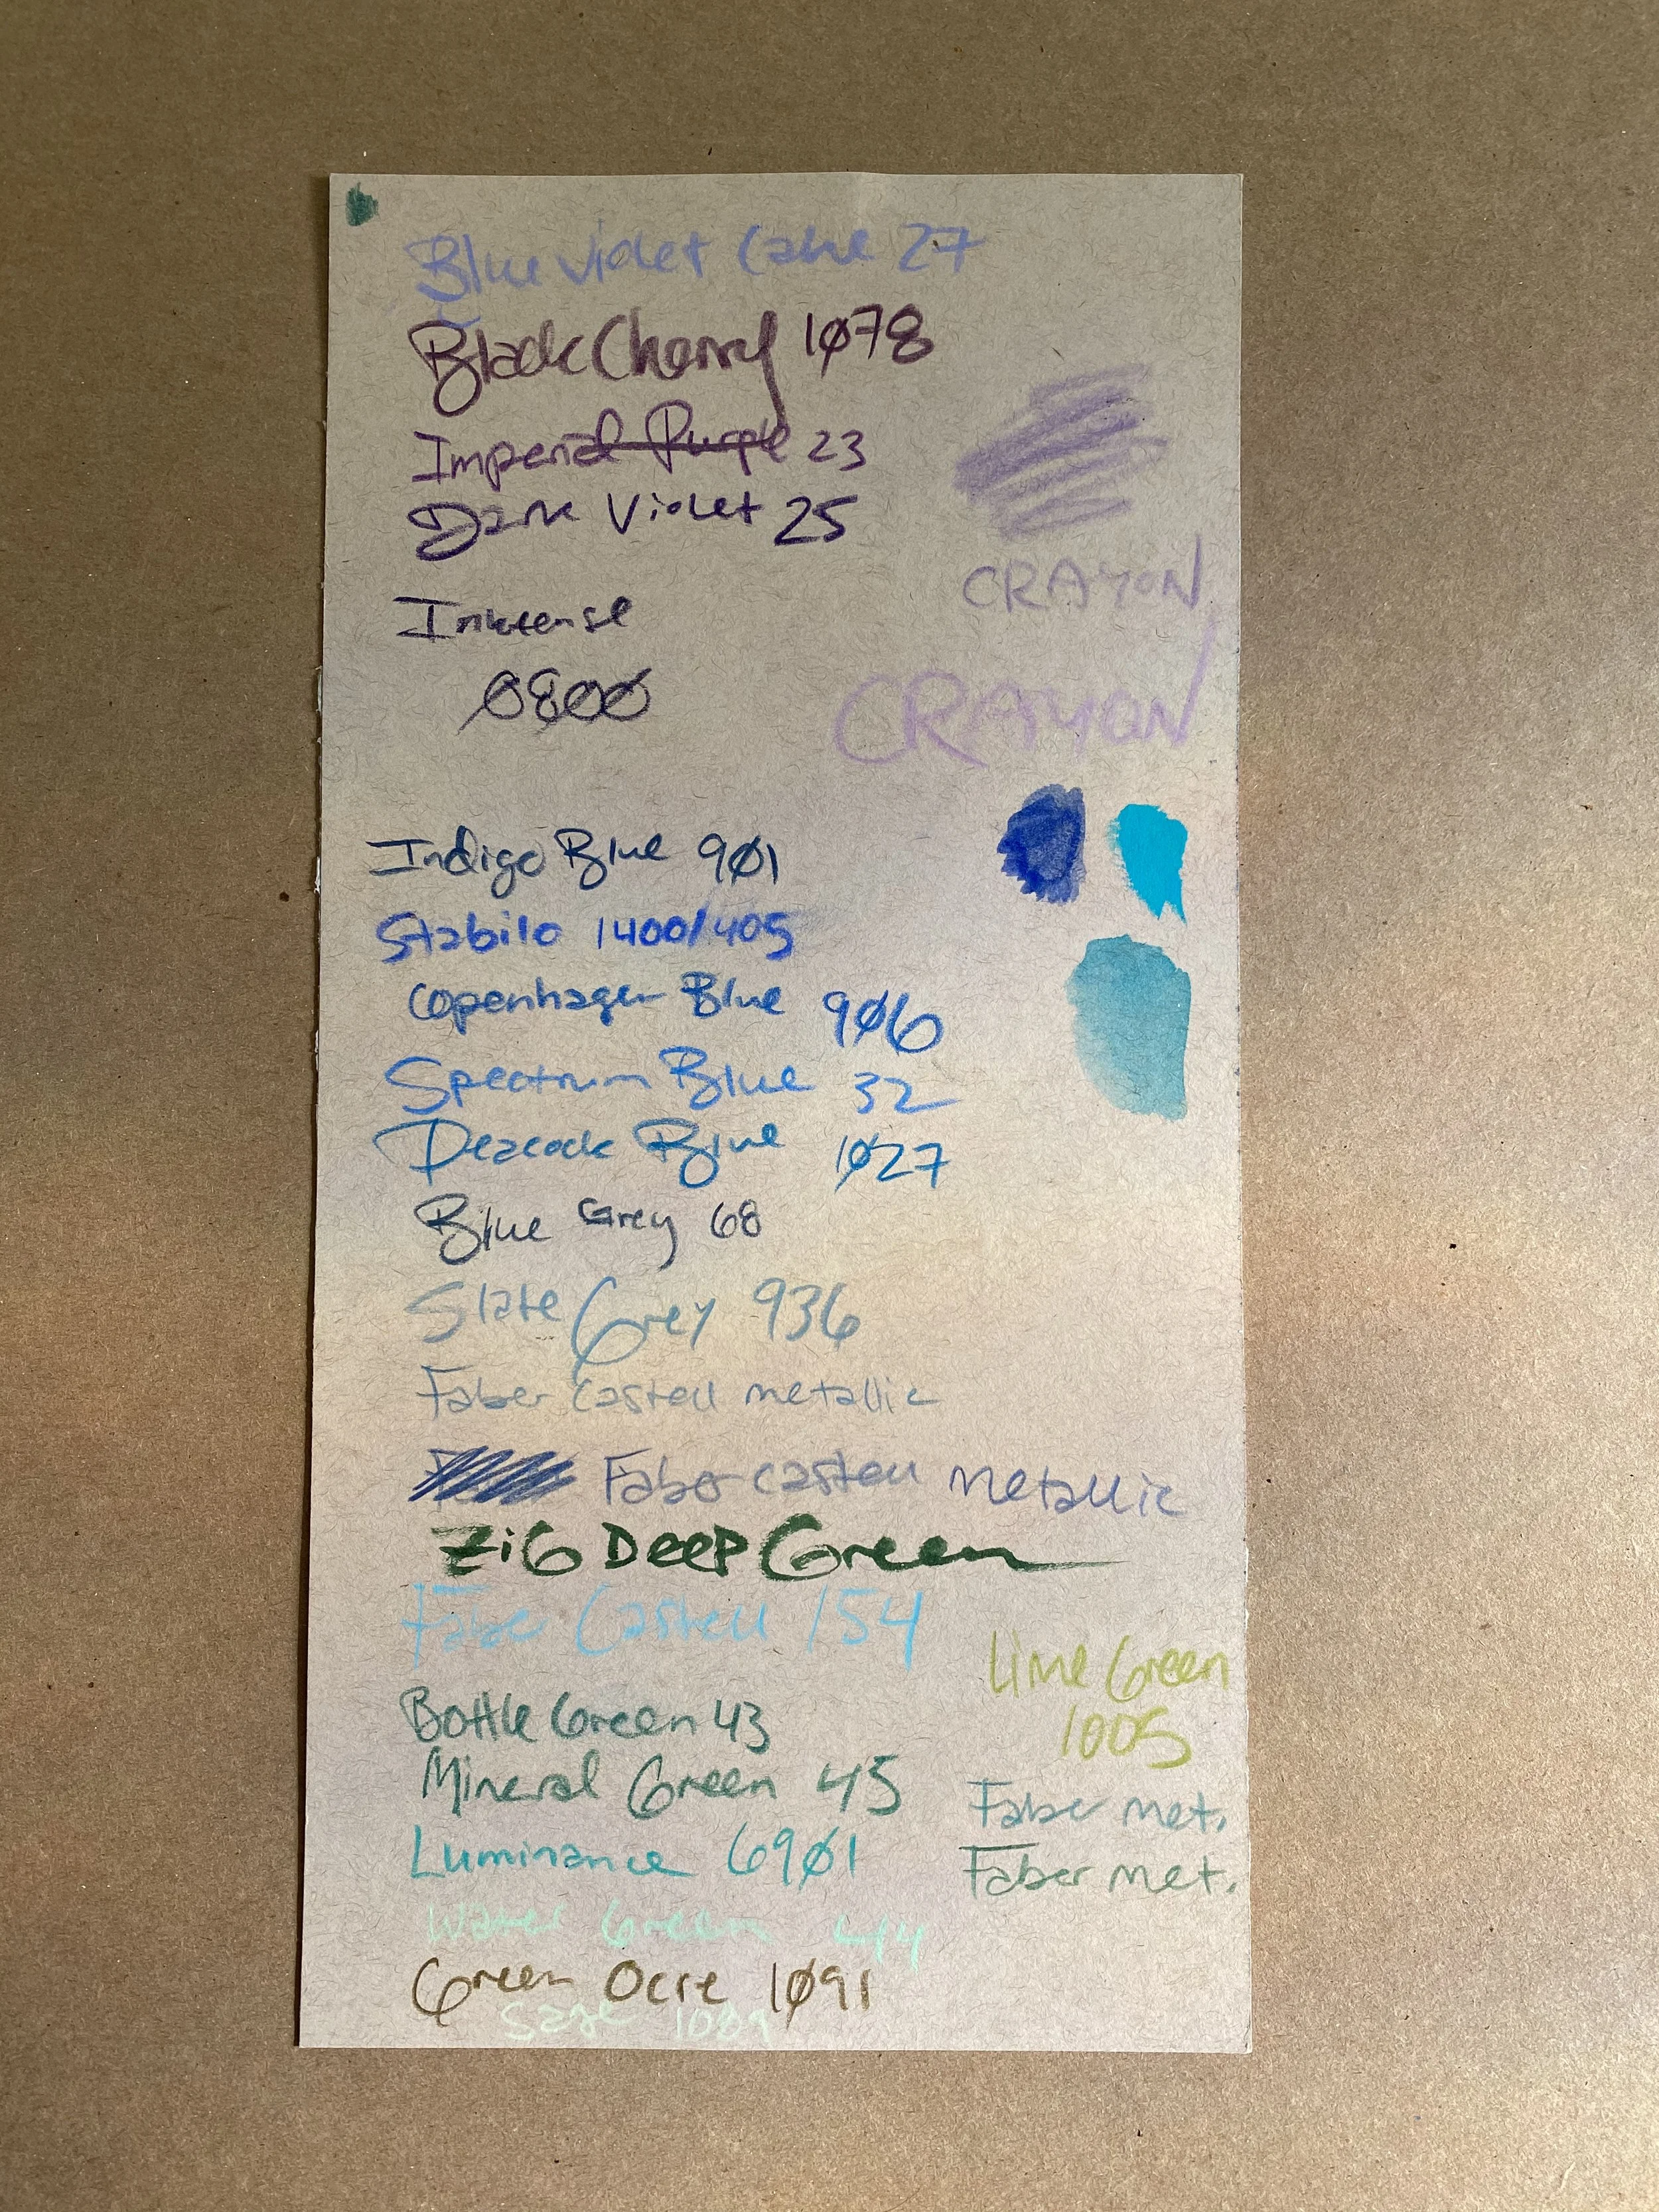 Blue Violet Lake 27
Black Cherry 1078
Imperial Purple 23
Dark Violet 25
CRAYON
Inktense
0800
CRAYON
Indigo Blue 901
Stabilo 1400/405
Copenhagen Blue 906
Spectrum Blue 32
Peacock Blue 1027
Blue Grey 68
Slate Grey 936
Faber Castell metallic
Faber Castell Metallic
ZiG Deep Green
Faber Castell 154
Lime Green
1005
Bottle Green 43
Mineral Green 45
Faber met.
Luminance 6901
Faber met.
Water Green 44
Green Ocre 1091
Sage 1089